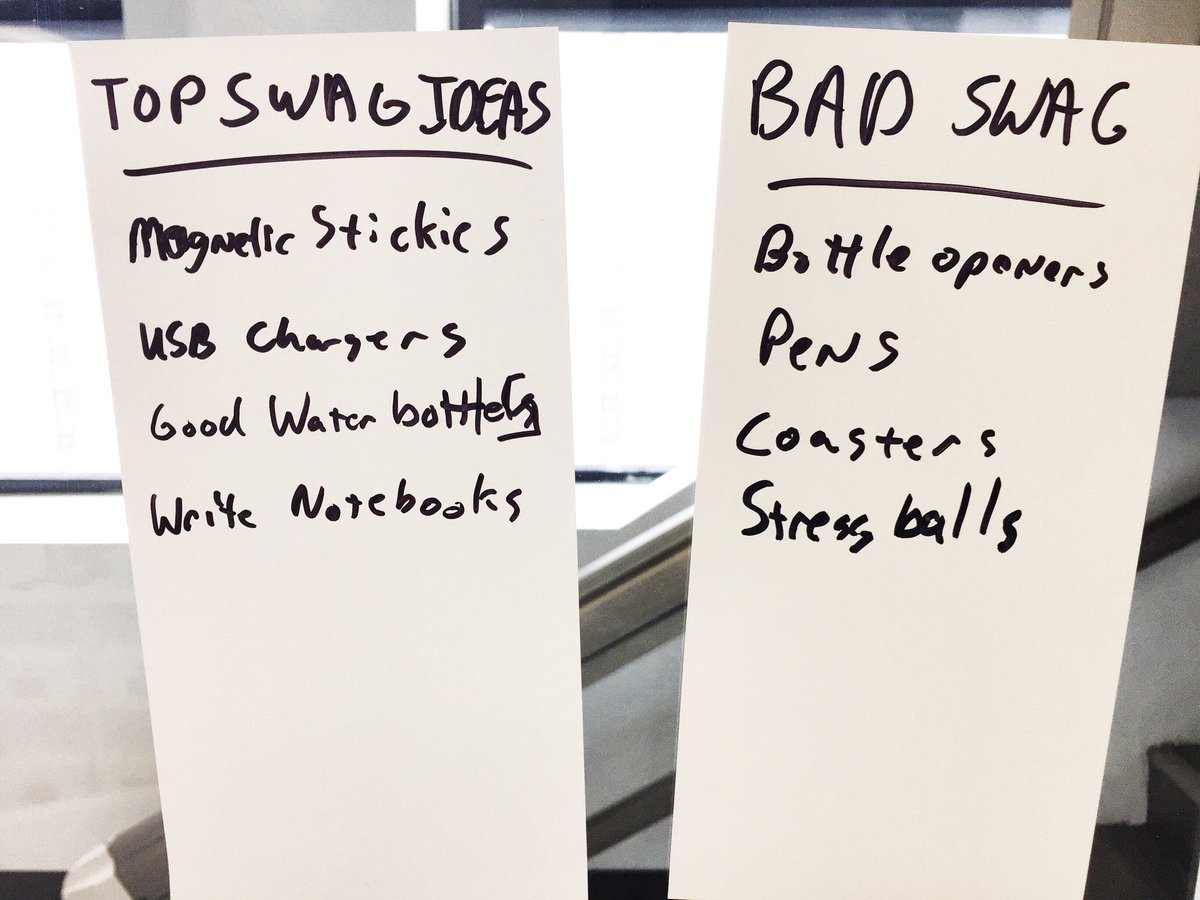 TOP SWAG IDEAS
Magnetic Stickies
USB Chargers
Good Water bottles
Write Notebooks
BAD SWAG
Bottle openers
Pens
Coasters
Stress balls